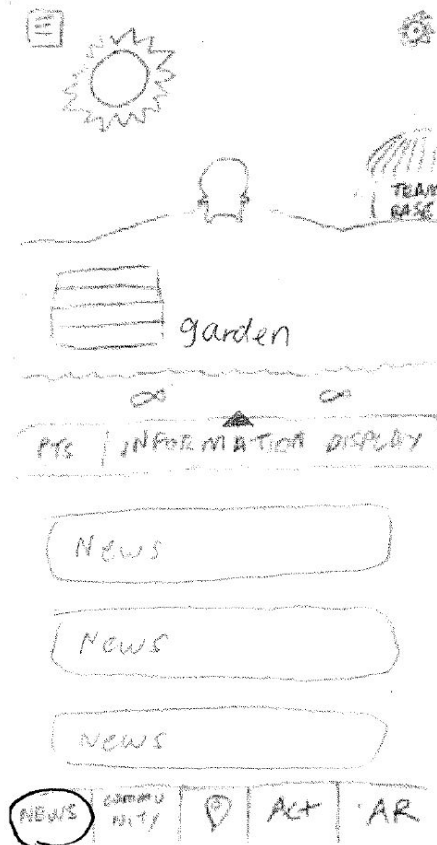 TEAM
BASE
garden
PTS INFORMATION DISPLAY
News
News
News
NEWS
COMMU
NITY
Act
AR